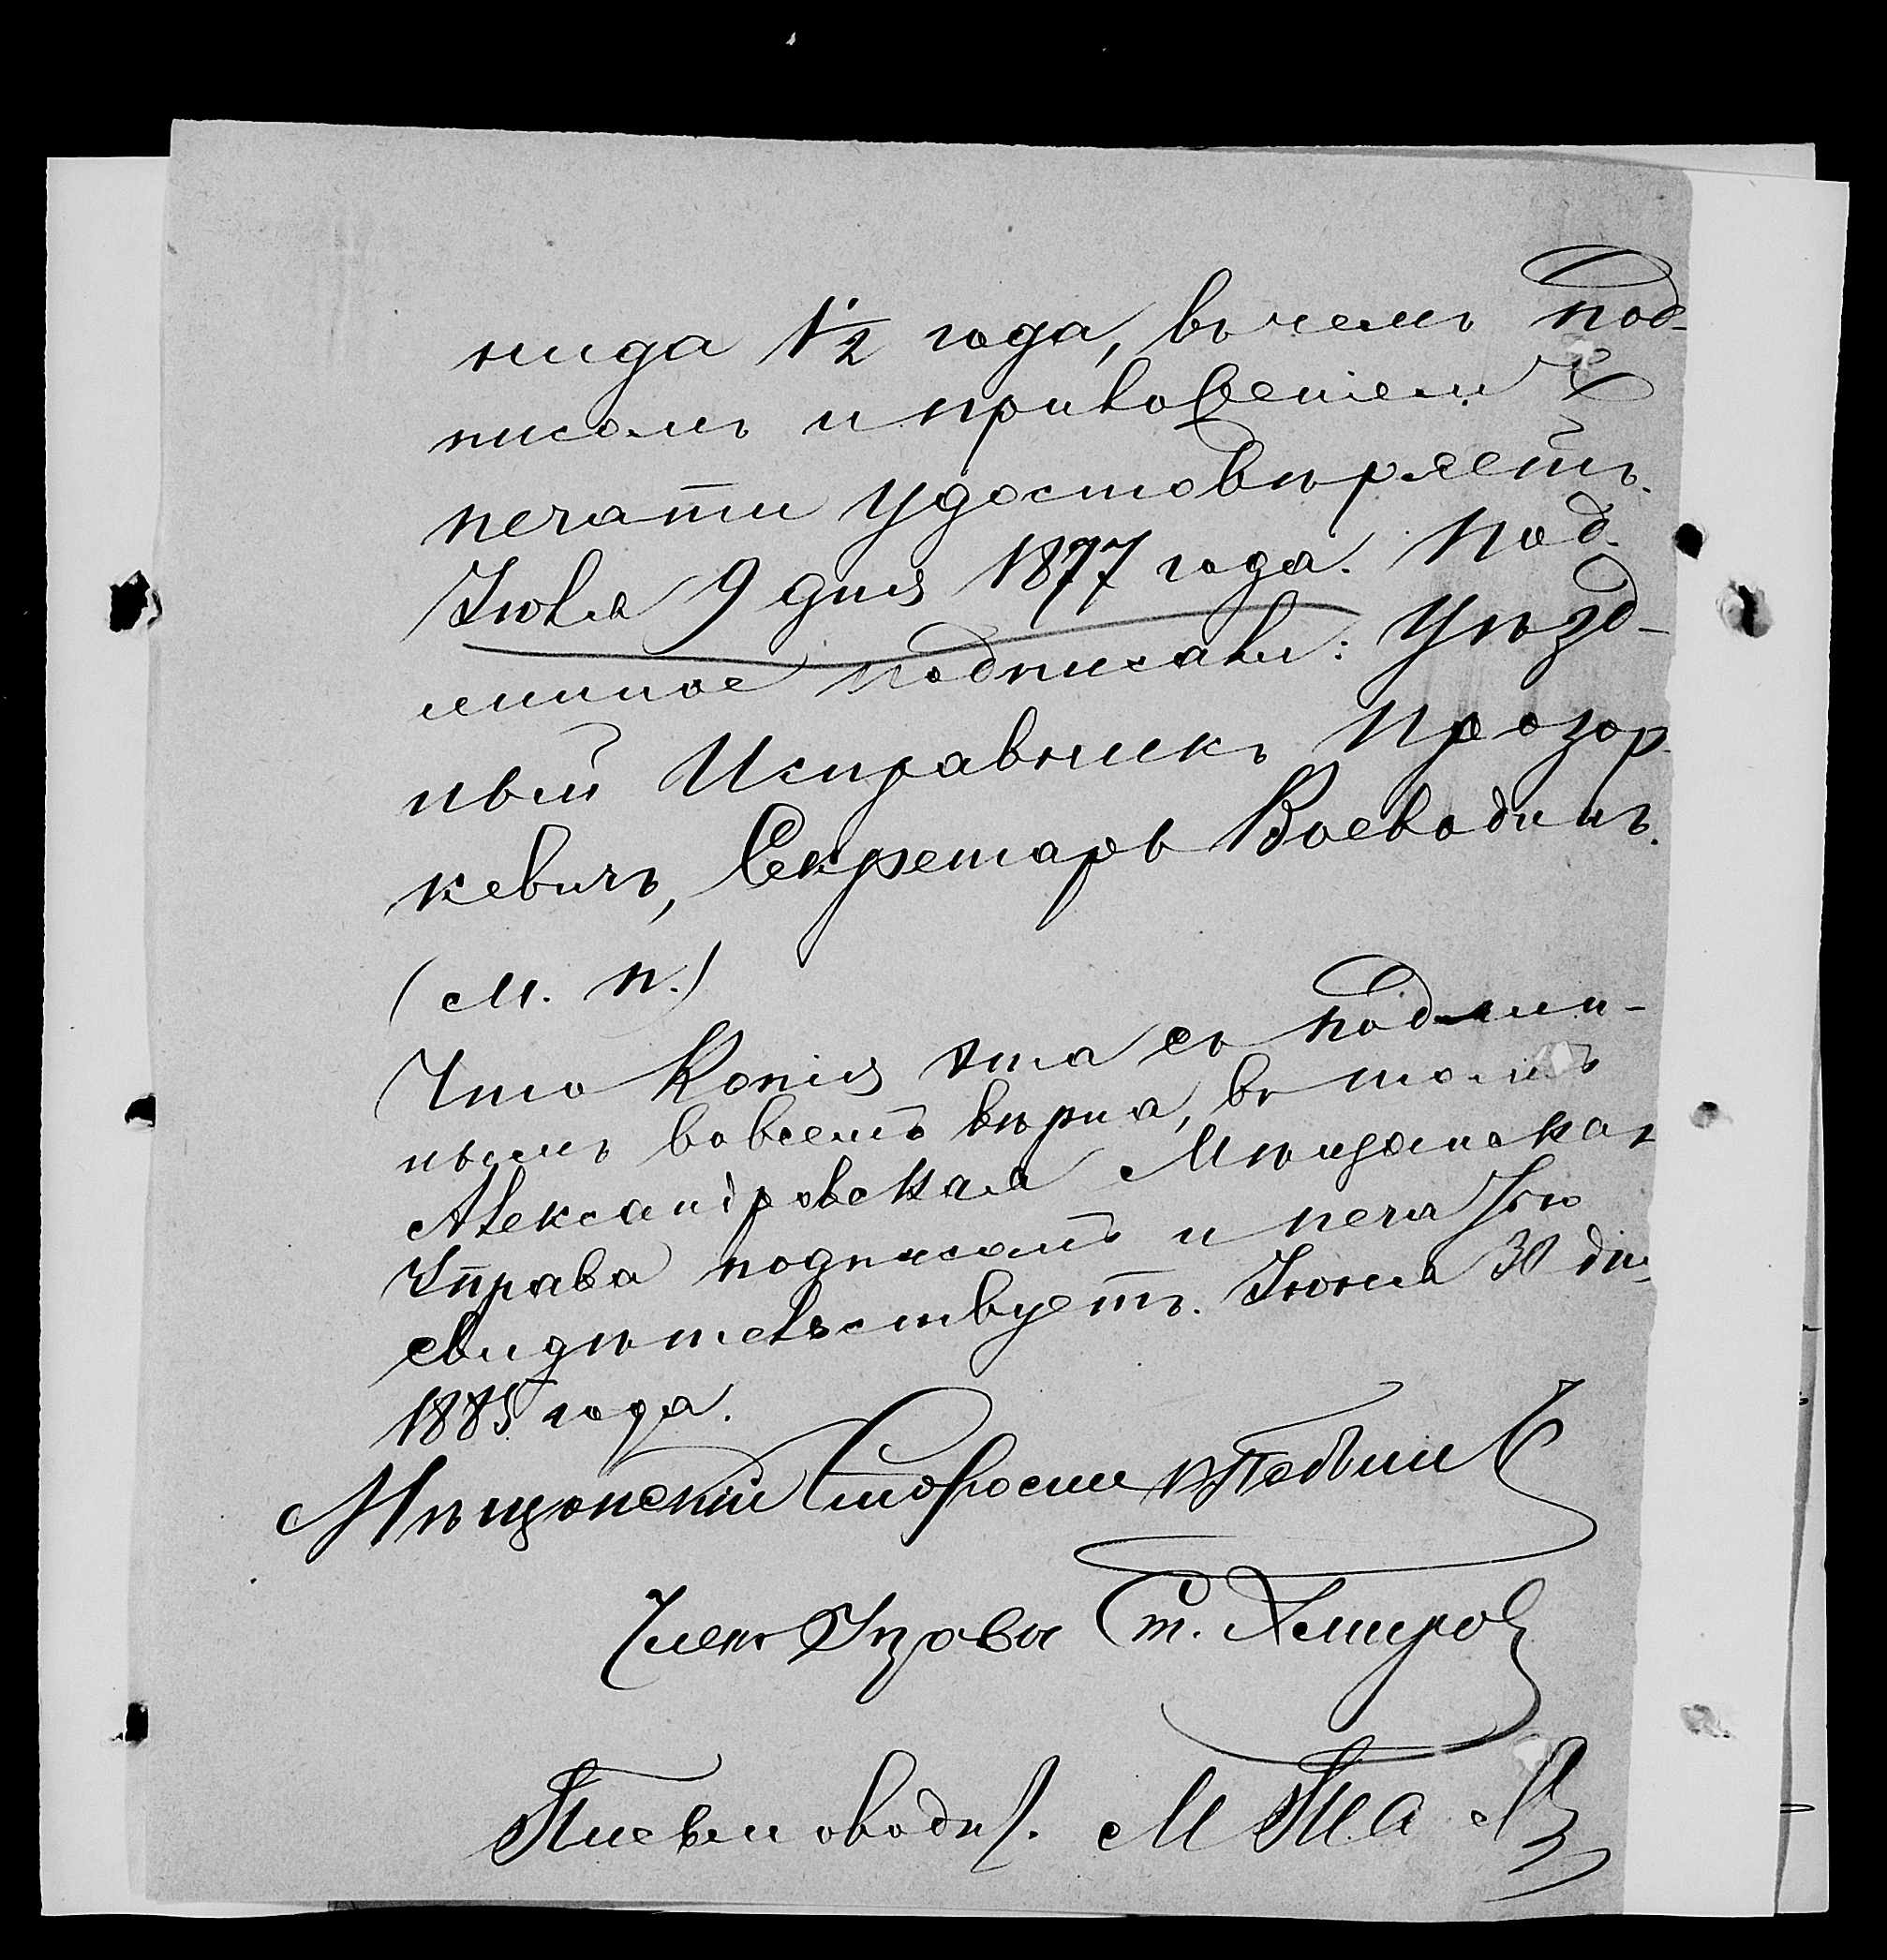 нида 1½ года, въ чемъ под-
писомъ и приложеніемъ
печати удостовѣряетъ.
Іюля 9 дня 1877 года. Под-
линное подписали: Уѣзд-
ный Исправникъ Прозор-
кевичъ, Секретарь Воеводинъ.
(М. п.)
Что Копія эта съ подлин-
нымъ вовсемъ вѣрна, въ томъ
Александровская Мѣщанская
Управа подписомъ и печатью
свидѣтельствуетъ. Іюня 30 дня
1885 года.
Мѣщанскій Староста
Членъ Управы Ст.
Письмоводит.